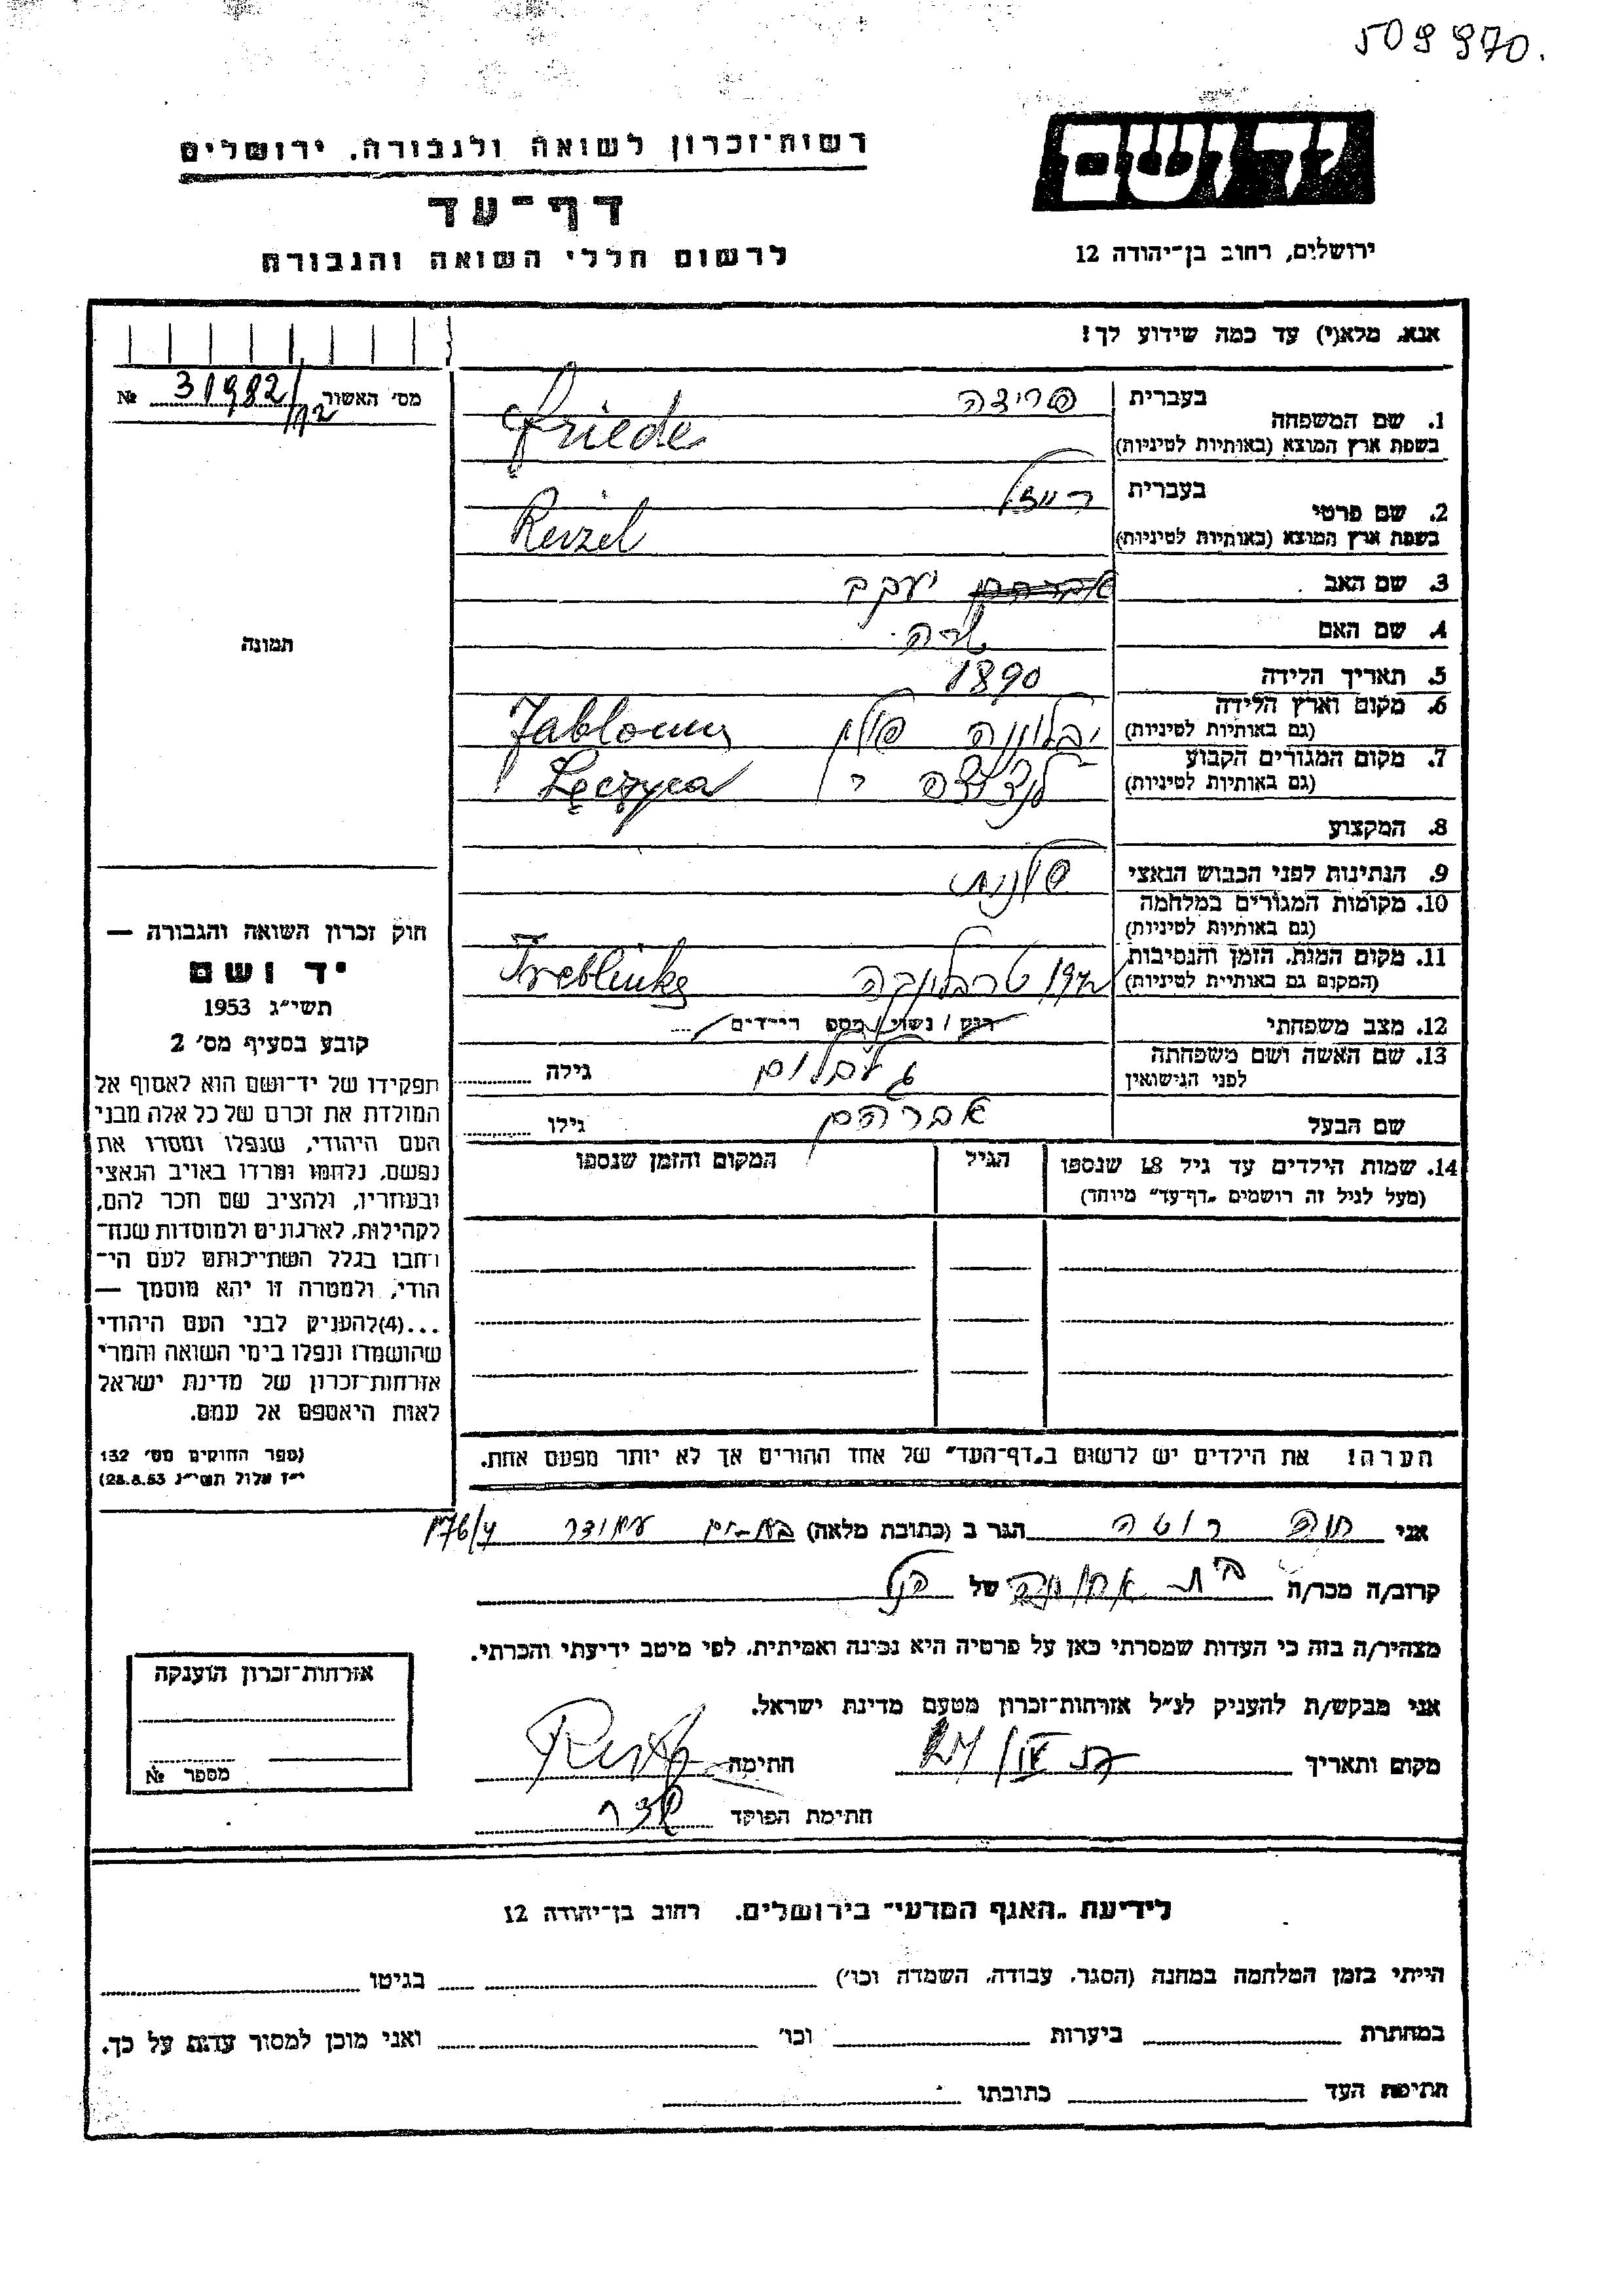 509970.
יד ושם
רשות־זכרון לשואה ולגבורה, ירושלים
דף־עד
לרשום חללי השואה והגבורה
ירושלים, רחוב בן־יהודה 12
אנא, מלא(י) עד כמה שידוע לך!
מס' האשור 31982/ №
1. שם המשפחה בעברית פרידה
בשפת ארץ המוצא (באותיות לטיניות) Friede
2. שם פרטי בעברית רייזל
בשפת ארץ המוצא (באותיות לטיניות) Reizel
3. שם האב אברהם יעקב
4. שם האם שרה
5. תאריך הלידה 1890
6. מקום וארץ הלידה
(גם באותיות לטיניות) יבלונה פולין
7. מקום המגורים הקבוע
(גם באותיות לטיניות) Łęczyca
8. המקצוע
9. הנתינות לפני הכבוש הנאצי פולנית
10. מקומות המגורים במלחמה
(גם באותיות לטיניות)
11. מקום המות, הזמן והנסיבות
(המקום גם באותיות לטיניות) טרבלינקה Treblinka
12. מצב משפחתי רוק / נשוי / מספר ילדים
13. שם האשה ושם משפחתה
לפני הנישואין גילה
שם הבעל אברהם גילו
14. שמות הילדים עד גיל 18 שנספו
(מעל לגיל זה רושמים "דף־עד" מיוחד)
הגיל
המקום והזמן שנספו
הערה! את הילדים יש לרשום ב"דף־העד" של אחד ההורים אך לא יותר מפעם אחת.
תמונה
חוק זכרון השואה והגבורה —
יד ושם
תשי"ג 1953
קובע בסעיף מס' 2
תפקידו של יד־ושם הוא לאסוף אל
המולדת את זכרם של כל אלה מבני
העם היהודי, שנפלו ומסרו את
נפשם, נלחמו ומרדו באויב הנאצי
ובעוזריו, ולהציב שם וזכר להם,
לקהילות, לארגונים ולמוסדות שנח־
רבו בגלל השתייכותם לעם הי־
הודי, ולמטרה זו יהא מוסמך —
...(4) להעניק לבני העם היהודי
שהושמדו ונפלו בימי השואה והמרי
אזרחות־זכרון של מדינת ישראל
לאות היאספם אל עמם.
(ספר החוקים מס' 132
י"ז אלול תשי"ג 28.8.53)
אני חוה רוטה הגר ב (כתובת מלאה) בת-ים
קרוב/ה מכר/ה של הנ"ל
מצהיר/ה בזה כי העדות שמסרתי כאן על פרטיה היא נכונה ואמיתית, לפי מיטב ידיעתי והכרתי.
אני מבקש/ת להעניק לנ"ל אזרחות־זכרון מטעם מדינת ישראל.
מקום ותאריך חתימה
חתימת הפוקד
אזרחות־זכרון הוענקה
מספר №
לידיעת "האגף המדעי" בירושלים, רחוב בן־יהודה 12
הייתי בזמן המלחמה במחנה (הסגר, עבודה, השמדה וכו') בגיטו
במחתרת ביערות וכו' ואני מוכן למסור עדות על כך.
חתימת העד כתובתו